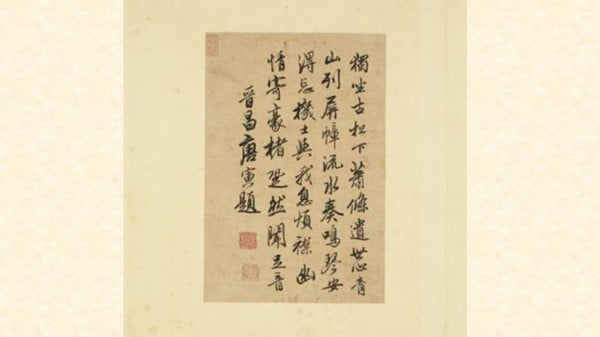 獨坐古松下蕭條遺世心青
山列屏幛流水奏鳴琴安
得忘機士與我息煩襟幽
情寄豪楮跫然聞足音
晉昌唐寅題